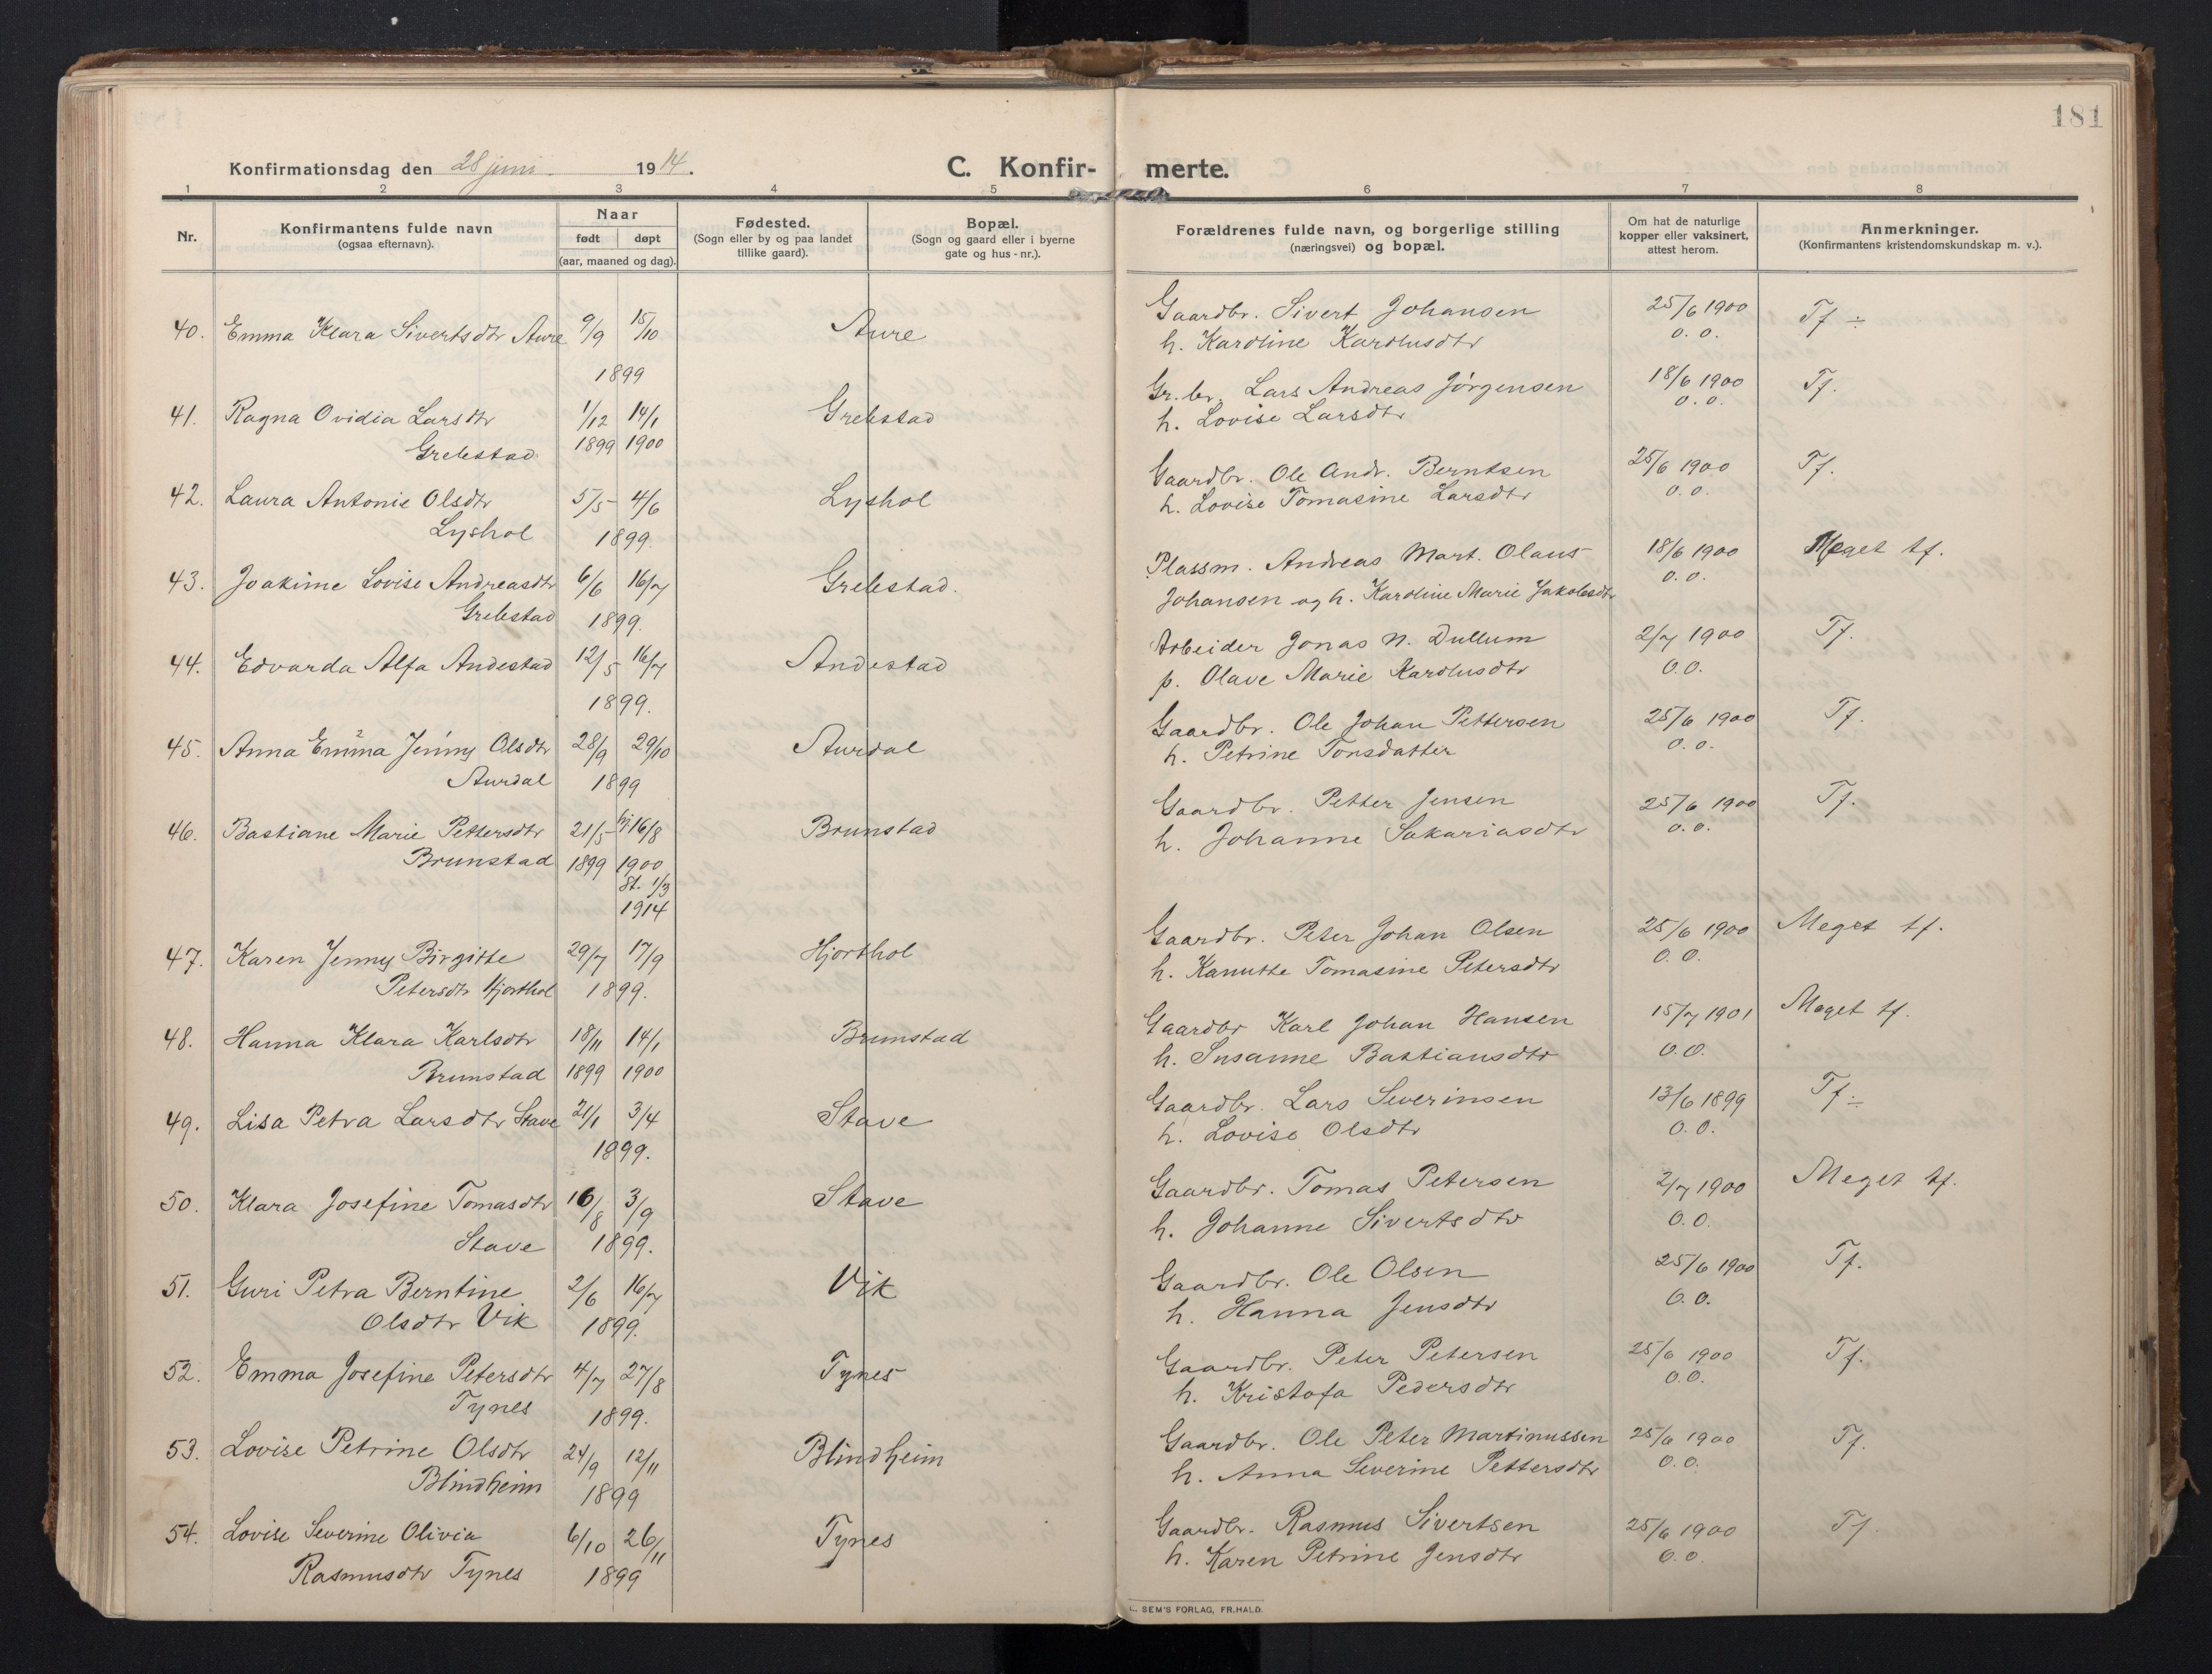 181
Konfirmationsdag den 28 juni 1914.
C. Konfir- merte.
1 2 3 4 5 6 7 8
Nr.
Konfirmantens fulde navn
(ogsaa efternavn).
Naar
født døpt
(aar, maaned og dag).
Fødested.
(Sogn eller by og paa landet
tillike gaard).
Bopæl.
(Sogn og gaard eller i byerne
gate og hus-nr.).
Forældrenes fulde navn, og borgerlige stilling
(næringsvei) og bopæl.
Om hat de naturlige
kopper eller vaksinert,
attest herom.
Anmerkninger.
(Konfirmantens kristendomskundskap m. v.).
40. Emma Klara Sivertsdtr Aure 9/9 15/10 Aure Gaardbr. Sivert Johansen 25/6 1900 Tf ÷
1899 h. Karoline Karolusdtr O.O.
41. Ragna Ovidia Larsdtr 1/12 14/1 Grebstad Gr.br. Lars Andreas Jørgensen 18/6 1900 Tf.
Grebstad 1899 1900 h. Lovise Larsdtr O.O.
42. Laura Antonie Olsdtr 5/5 4/6 Lyshol Gaardbr. Ole Andr. Berntsen 25/6 1900 Tf.
Lyshol 1899. h. Lovise Tomasine Larsdtr O.O.
43. Joakime Lovise Andreasdtr 6/6 16/7 Grebstad. Plassm. Andreas Mart. Olaus 18/6 1900 Meget tf.
Grebstad 1899. Johansen og h. Karoline Marie Jakobsdtr O.O.
44. Edvarda Alfa Andestad 12/5 16/7 Andestad Arbeider Jonas N. Dullum 2/7 1900 Tf.
1899. p. Olave Marie Karolusdtr O.O.
45. Anna Emma Jenny Olsdtr 28/9 29/10 Aurdal Gaardbr. Ole Johan Pettersen 25/6 1900 Tf.
Aurdal 1899 h. Petrine Tonsdatter O.O.
46. Bastiane Marie Pettersdtr 21/5 hj 16/8 Brunstad Gaardbr. Petter Jensen 25/6 1900 Tf.
Brunstad 1899 1900 h. Johanne Sakariasdtr O.O.
St. 1/3
1914
47. Karen Jenny Birgitte 29/7 17/9 Hjorthol Gaardbr. Peter Johan Olsen 25/6 1900 Meget tf.
Petersdtr Hjorthol 1899. h. Kanutte Tomasine Petersdtr O.O.
48. Hanna Klara Karlsdtr 18/11 14/1 Brunstad Gaardbr Karl Johan Hansen 15/7 1901 Meget tf.
Brunstad 1899 1900 h. Susanne Bastiansdtr O.O.
49. Lisa Petra Larsdtr Stave 21/1 3/4 Stave Gaardbr. Lars Severinsen 13/6 1899 Tf. ÷
1899. h. Lovise Olsdtr O.O.
50. Klara Josefine Tomasdtr 16/8 3/9 Stave Gaardbr. Tomas Petersen 2/7 1900 Meget tf.
Stave 1899. h. Johanne Sivertsdtr O.O.
51. Guri Petra Berntine 2/6 16/7 Vik Gaardbr. Ole Olsen 25/6 1900 Tf.
Olsdtr Vik 1899. h. Hanna Jensdtr O.O.
52. Emma Josefine Petersdtr 4/7 27/8 Tynes Gaardbr. Peter Petersen 25/6 1900 Tf.
Tynes 1899. h. Kristofa Pedersdtr O.O.
53. Lovise Petrine Olsdtr 24/9 12/11 Blindheim Gaardbr. Ole Peter Martinussen 25/6 1900 Tf.
Blindheim 1899 h. Anna Severine Pettersdtr O.O.
54. Lovise Severine Olivia 6/10 26/11 Tynes Gaardbr. Rasmus Sivertsen 25/6 1900 Tf.
Rasmusdtr Tynes 1899 h. Karen Petrine Jensdtr O.O.
L. SEM'S FORLAG, FR.HALD.